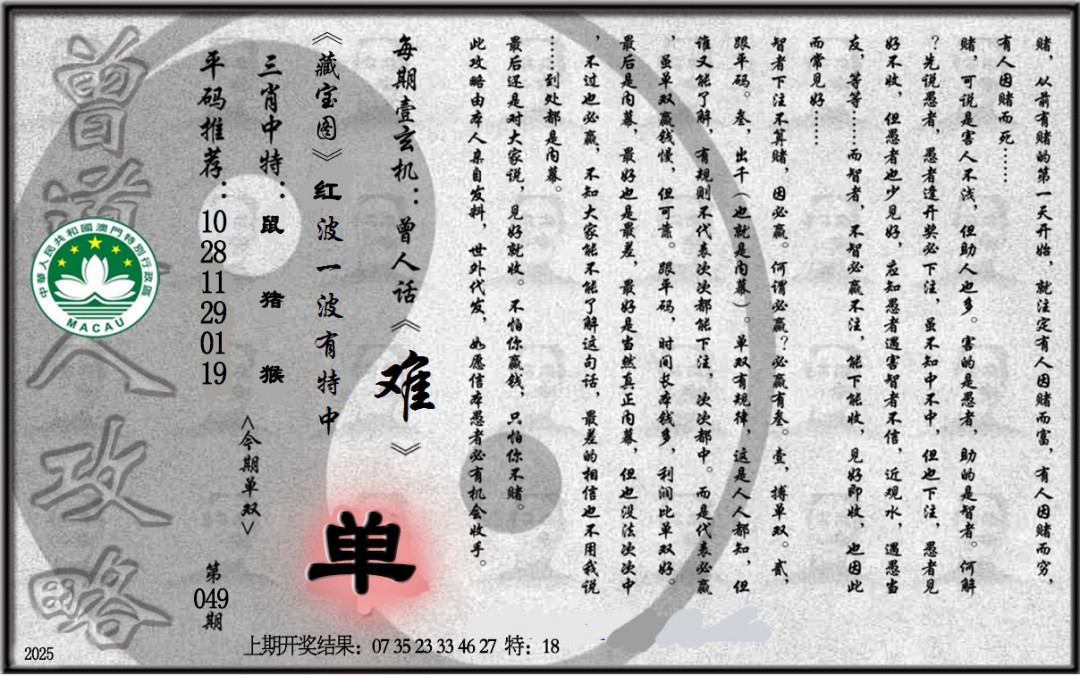 赌，从前有赌的第一天开始，就注定有人因赌而富，有人因赌而穷，
有人因赌而死……
赌，可说是害人不浅，但助人也多。害的是愚者，助的是智者。何解
？先说愚者，愚者逢开奖必下注，虽不知中不中，但也下注，愚者见
好不收，但愚者也少见好，应知愚者遇害智者不信，近观水，遇愚当
友，等等……而智者，不智必赢不注，能下能收，见好即收，也因此
而常见好……
智者下注不算赌，因必赢。何谓必赢？必赢有叁。壹，搏单双。贰，
跟平码。叁，出千（也就是内幕）。单双有规律，这是人人都知，但
谁又能了解，有规则不代表次次都能下注，次次都中。而是代表必赢
，虽单双赢钱慢，但可靠。跟平码，时间长本钱多，利润比单双好。
最后是内幕，最好也是最差，最好是当然真正内幕，但也没法次次中
，不过也必赢，不知大家能不能了解这句话，最差的相信也不用我说
……到处都是内幕。
最后还是对大家说，见好就收。不怕你赢钱，只怕你不赌。
此攻略由本人亲自发料，世外代发，如愿信本愚者必有机会收手。
每期壹玄机：曾人话《难》
《藏宝图》红波一波有特中
三肖中特：鼠 猪 猴
平码推荐：10 28 11 29 01 19
<今期单双>
单
第049期
曾道人攻略
中華人民共和國澳門特別行政區
MACAU
上期开奖结果：07 35 23 33 46 27 特：18
2025